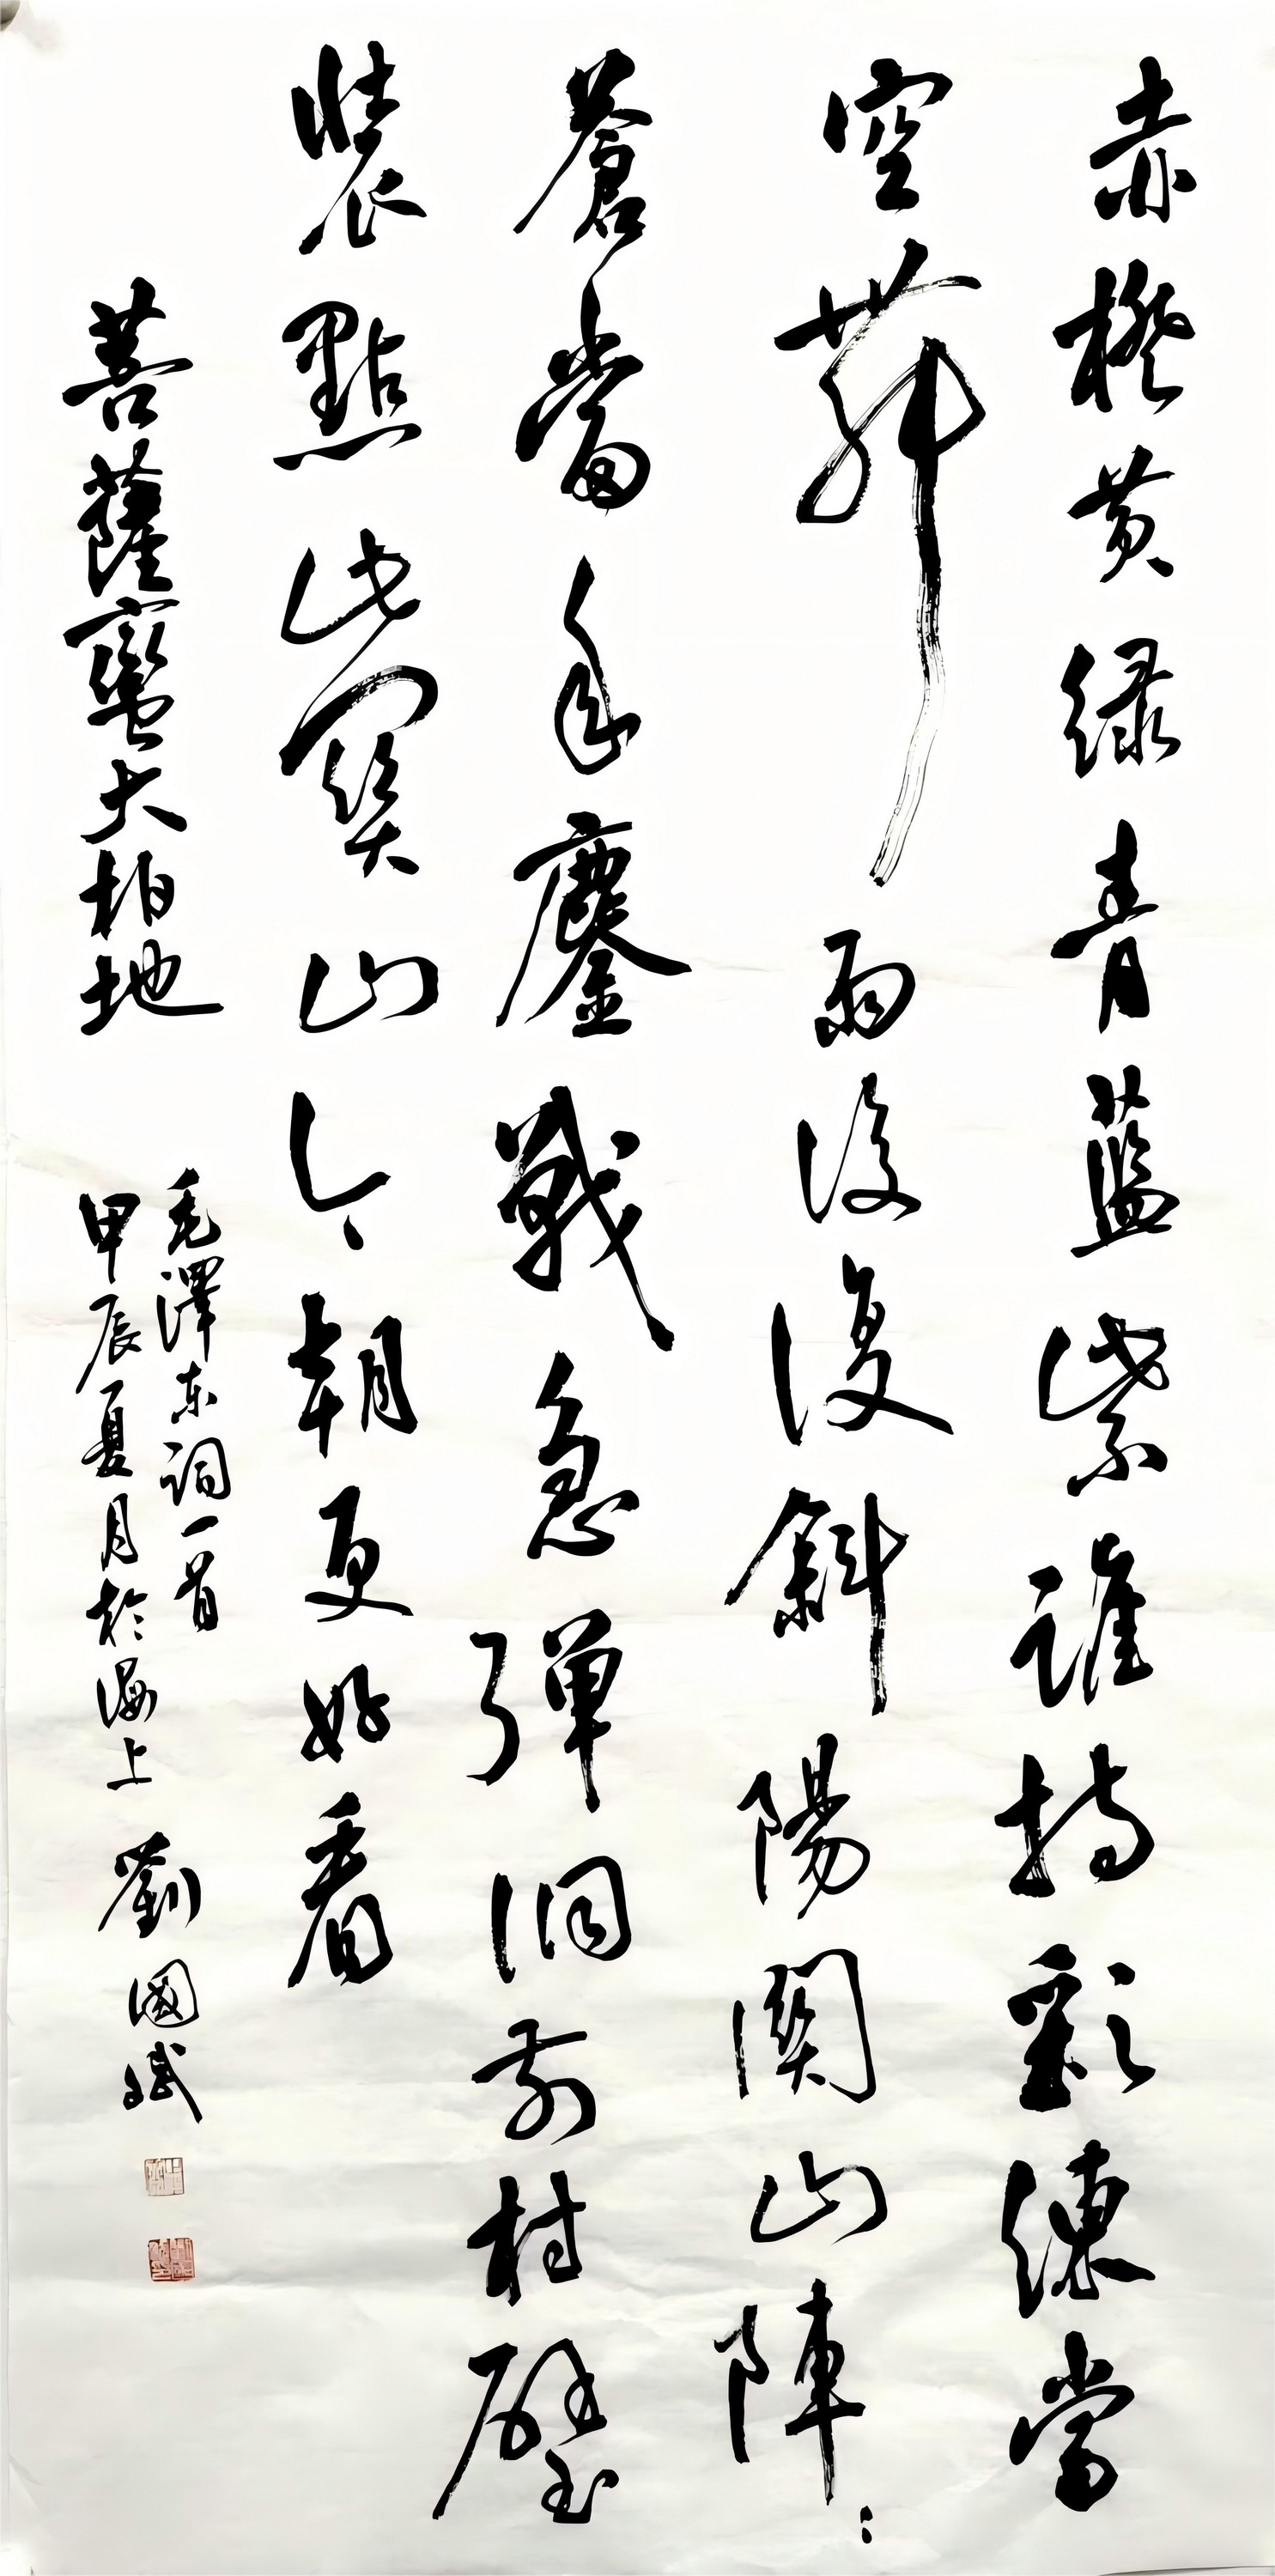 赤橙黄緑青藍紫誰持彩練當
空舞雨後復斜陽關山陣〻
蒼當年鏖戰急弹洞前村壁
裝點此關山今朝更好看
菩薩蠻大柏地
毛澤东詞一首
甲辰夏月於海上 劉國斌